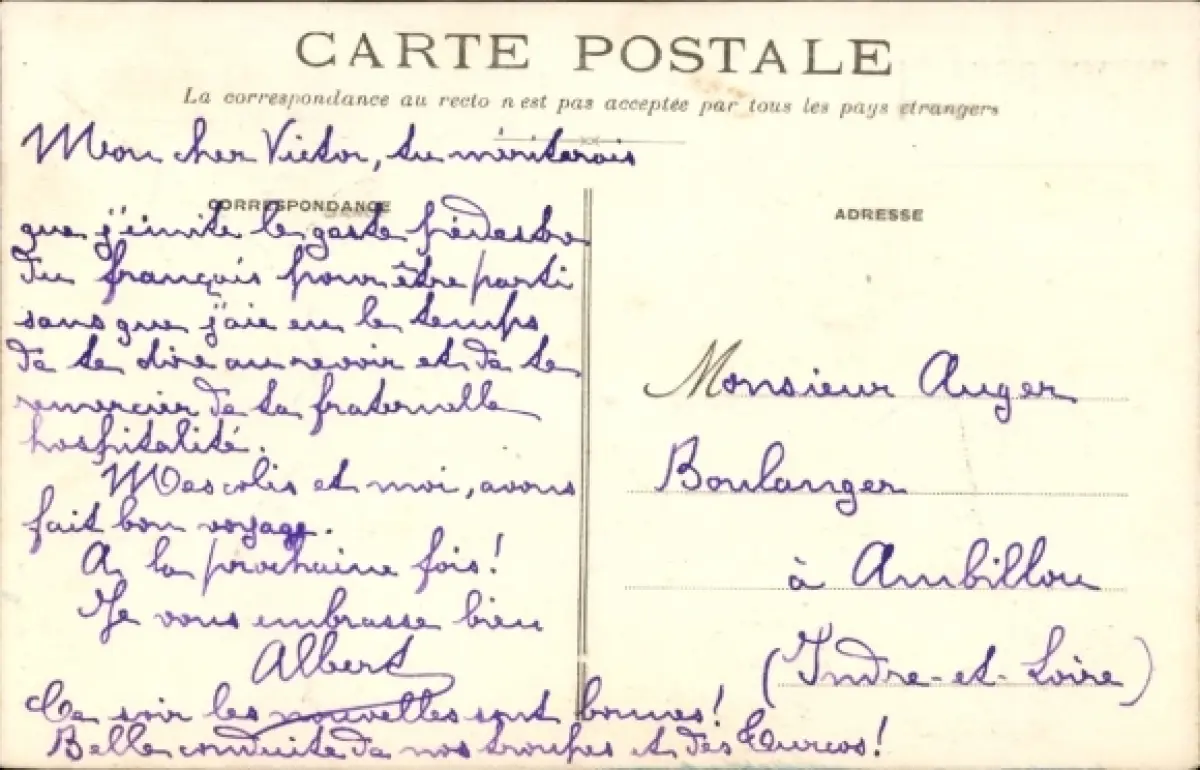 CARTE POSTALE
La correspondance au recto n'est pas acceptée par tous les pays etrangers
Mon cher Victor, tu mériterais
CORRESPONDANCE
que j'imite le geste
du français pour être parti
sans que j'aie eu le temps
de te dire au revoir et de te
remercier de ta fraternelle
hospitalité.
Mes colis et moi, avons
fait bon voyage.
A la prochaine fois!
Je vous embrasse bien
Albert
Ce soir les nouvelles sont bonnes!
Belle conduite de nos troupes et des Turcos!
ADRESSE
Monsieur Auger
Boulanger
à Ambillou
(Indre-et-Loire)